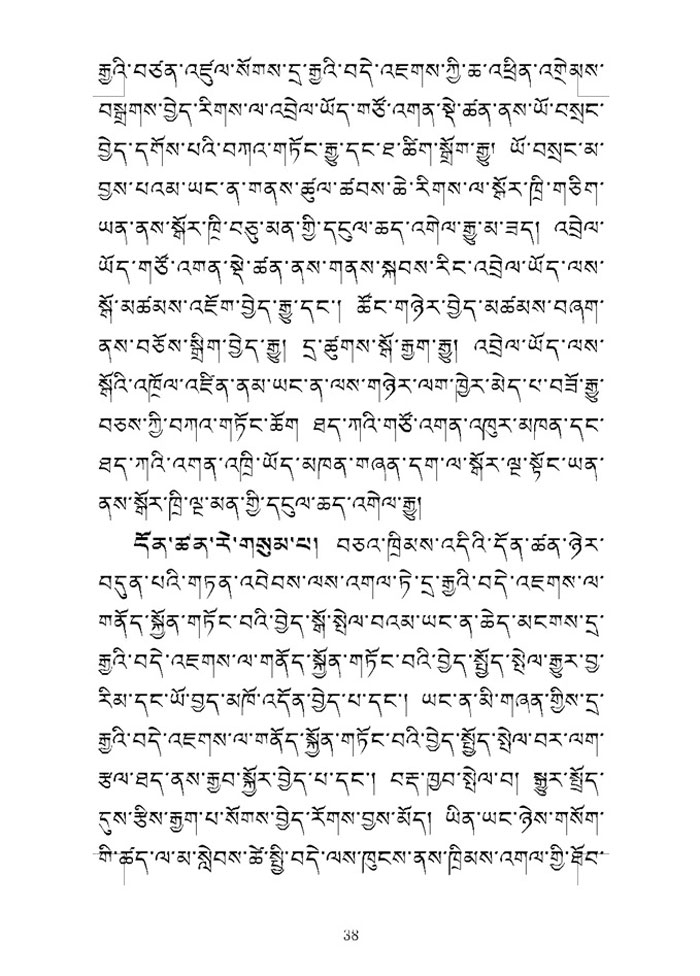 རྒྱའི་བཙན་འཛུལ་སོགས་དྲ་རྒྱའི་བདེ་འཇགས་ཀྱི་ཆ་འཕྲིན་འགྲེམས་
བསྒྲགས་བྱེད་རིགས་ལ་འབྲེལ་ཡོད་གཙོ་འགན་སྡེ་ཚན་ནས་ཡོ་བསྲང་
བྱེད་དགོས་པའི་བཀའ་གཏོང་རྒྱུ་དང་ཐ་ཚིག་སྒྲོག་རྒྱུ། ཡོ་བསྲང་མ་
བྱས་པའམ་ཡང་ན་གནས་ཚུལ་ཚབས་ཆེ་རིགས་ལ་སྒོར་ཁྲི་གཅིག་
ཡན་ནས་སྒོར་ཁྲི་བཅུ་མན་གྱི་དངུལ་ཆད་འགེལ་རྒྱུ་མ་ཟད། འབྲེལ་
ཡོད་གཙོ་འགན་སྡེ་ཚན་ནས་གནས་སྐབས་རིང་འབྲེལ་ཡོད་ལས་
སྒོ་མཚམས་འཇོག་བྱེད་རྒྱུ་དང་། ཚོང་གཉེར་བྱེད་མཚམས་བཞག་
ནས་བཅོས་སྒྲིག་བྱེད་རྒྱུ། དྲ་ཚུགས་སྒོ་རྒྱག་རྒྱུ། འབྲེལ་ཡོད་ལས་
སྒོའི་འཁྲོལ་འཛིན་ནམ་ཡང་ན་ལས་གཉེར་ལག་ཁྱེར་མེད་པ་བཟོ་རྒྱུ་
བཅས་ཀྱི་བཀའ་གཏོང་ཆོག ཐད་ཀའི་གཙོ་འགན་འཁུར་མཁན་དང་
ཐད་ཀའི་འགན་འཁྲི་ཡོད་མཁན་གཞན་དག་ལ་སྒོར་ལྔ་སྟོང་ཡན་
ནས་སྒོར་ཁྲི་ལྔ་མན་གྱི་དངུལ་ཆད་འགེལ་རྒྱུ།
དོན་ཚན་རེ་གསུམ་པ། བཅའ་ཁྲིམས་འདིའི་དོན་ཚན་ཉེར་
བདུན་པའི་གཏན་འབེབས་ལས་འགལ་ཏེ་དྲ་རྒྱའི་བདེ་འཇགས་ལ་
གནོད་སྐྱོན་གཏོང་བའི་བྱེད་སྒོ་སྤེལ་བའམ་ཡང་ན་ཆེད་མངགས་དྲ་
རྒྱའི་བདེ་འཇགས་ལ་གནོད་སྐྱོན་གཏོང་བའི་བྱེད་སྤྱོད་སྤེལ་རྒྱུར་བྱ་
རིམ་དང་ཡོ་བྱད་མཁོ་འདོན་བྱེད་པ་དང་། ཡང་ན་མི་གཞན་གྱིས་དྲ་
རྒྱའི་བདེ་འཇགས་ལ་གནོད་སྐྱོན་གཏོང་བའི་བྱེད་སྤྱོད་སྤེལ་བར་ལག་
རྩལ་ཐད་ནས་རྒྱབ་སྐྱོར་བྱེད་པ་དང་། བརྡ་ཁྱབ་སྤེལ་བ། སྒྱུར་སྤྲོད་
དུས་རྩིས་རྒྱག་པ་སོགས་བྱེད་རོགས་བྱས་མོད། ཡིན་ཡང་ཉེས་གསོག་
གི་ཚད་ལ་མ་སླེབས་ཚེ་སྤྱི་བདེ་ལས་ཁུངས་ནས་ཁྲིམས་འགལ་གྱི་ཐོབ་
38